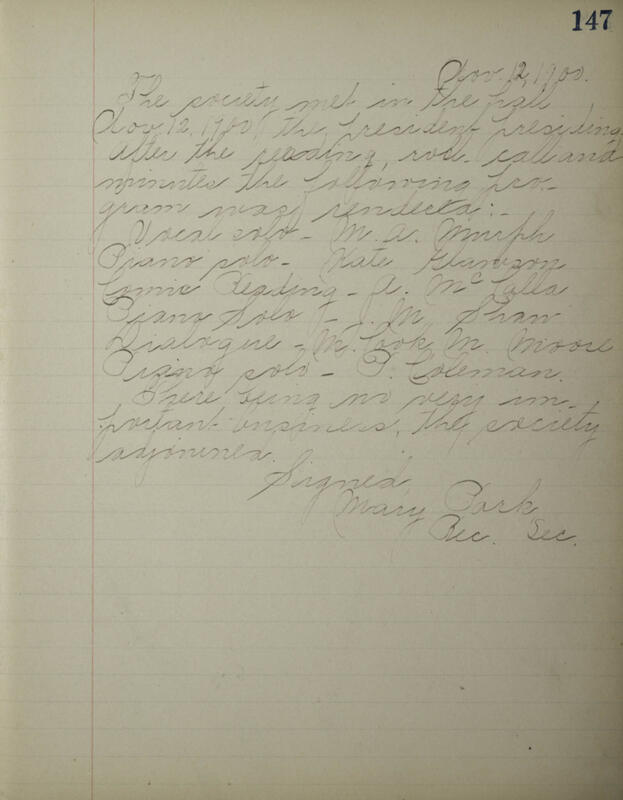 147
Nov. 12, 1900.
The society met in the hall
Nov. 12, 1900, the president presiding.
After the reading, roll call and
minutes the following pro-
gram was rendered:-
Vocal solo - M. A. Murph
Piano solo - Kate
Comic Reading - A. McCalla
Piano Solo - J. M. Shaw
Dialogue - M. Cook, M. Moose
Piano solo - P. Coleman.
There being no very im-
portant business, the society
adjourned.
Signed
Mary Park
Rec. Sec.